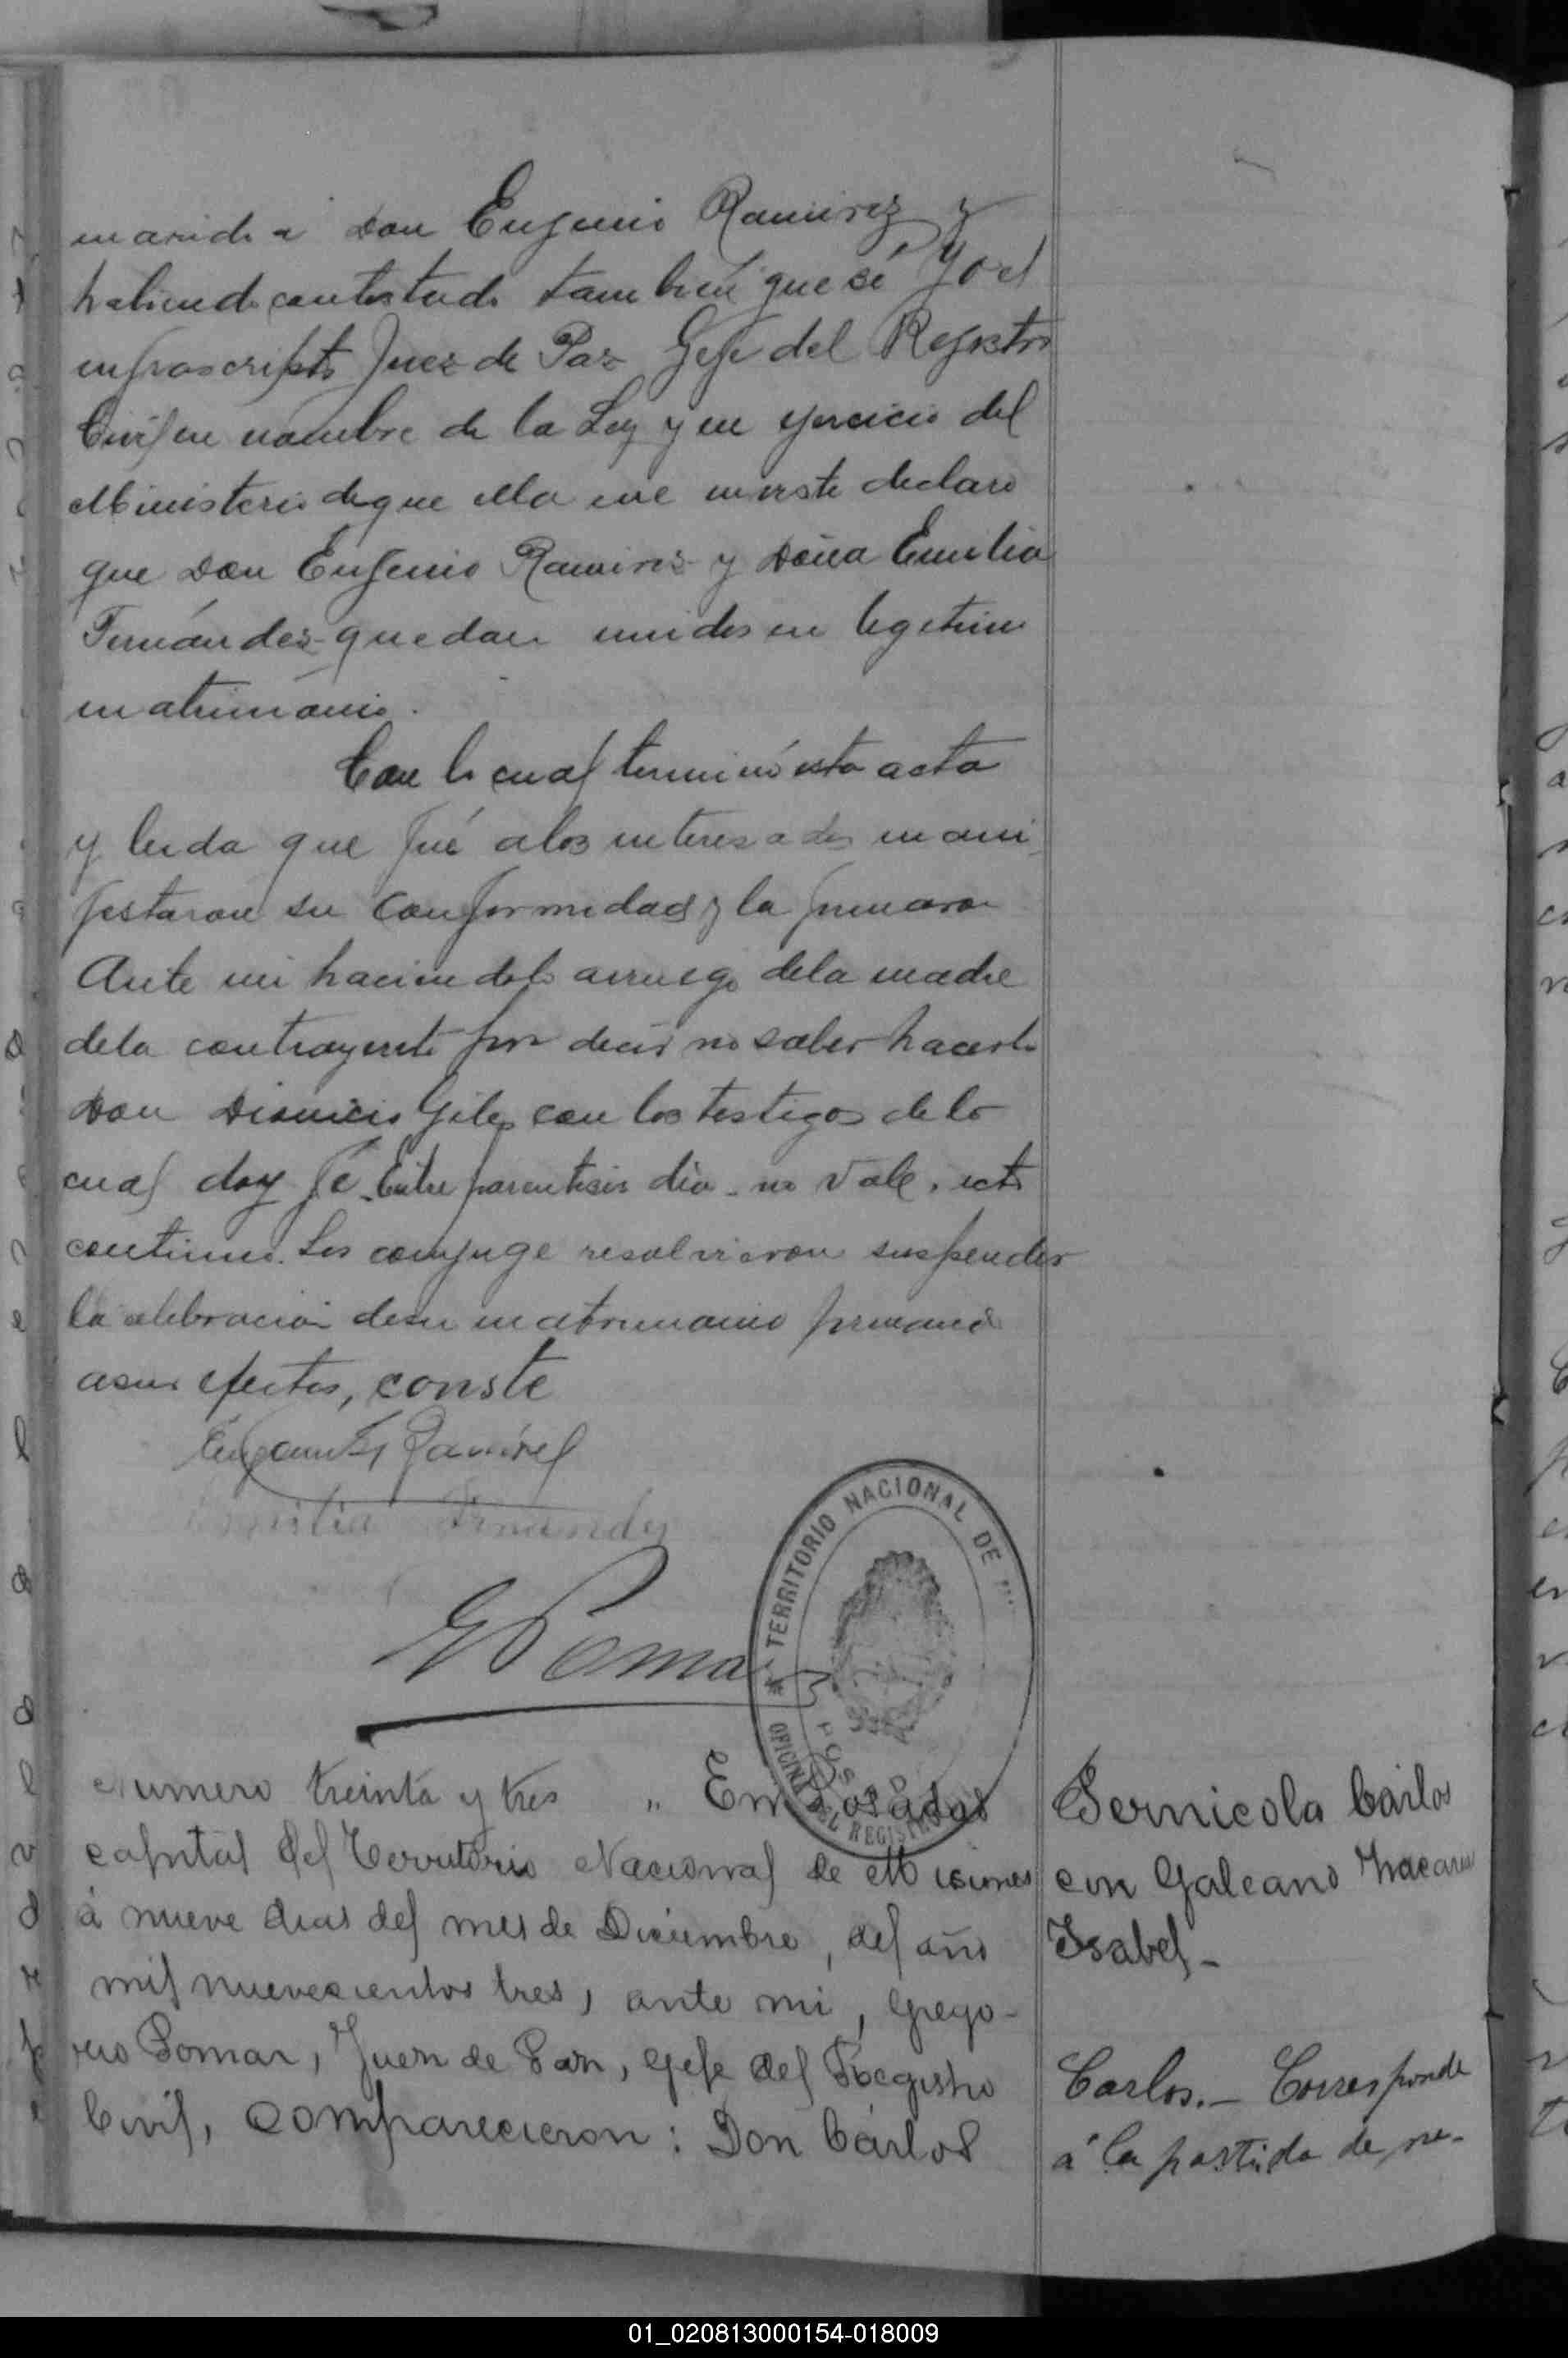 marido a Don Eugenio Ramirez y
habiendo contestado tambien que sí Yo el
infrascripto Juez de Paz Gefe del Registro
Civil en nombre de la Ley y en ejercicio del
Ministerio de que ella me inviste declaro
que Don Eugenio Ramirez y Doña Emilia
Fernández quedan unidos en legitimo
matrimonio.
Con lo cual terminó esta acta
y leida que fué a los interesados mani
festaron su conformidad y la firmaron
Ante mi haciendolo arruego dela madre
dela contrayente por decir no saber hacerlo
Don Dionicio Giles con los testigos de lo
cual doy fé. Entre parentesis dia no vale.
continuo. Los conjuge resolvieron suspender
la celebracion desu matrimonio
asus efectos, conste
Ramirez
Emilia Fernandez
G Pomar
TERRITORIO NACIONAL DE
OFICINA DEL REGISTRO
POSADAS
Numero treinta y tres „ En Posadas
capital del Territorio Nacional de Misiones
á nueve dias del mes de Diciembre, del año
mil nuevecientos tres, ante mi, Grego-
rio Pomar, Juez de Paz, Gefe del Registro
Civil, comparecieron: Don Cárlos
Pernicola Cárlos
con Galeano Macaria
Isabel-
Carlos.- Corresponde
á la partida de ne-
01_020813000154-018009